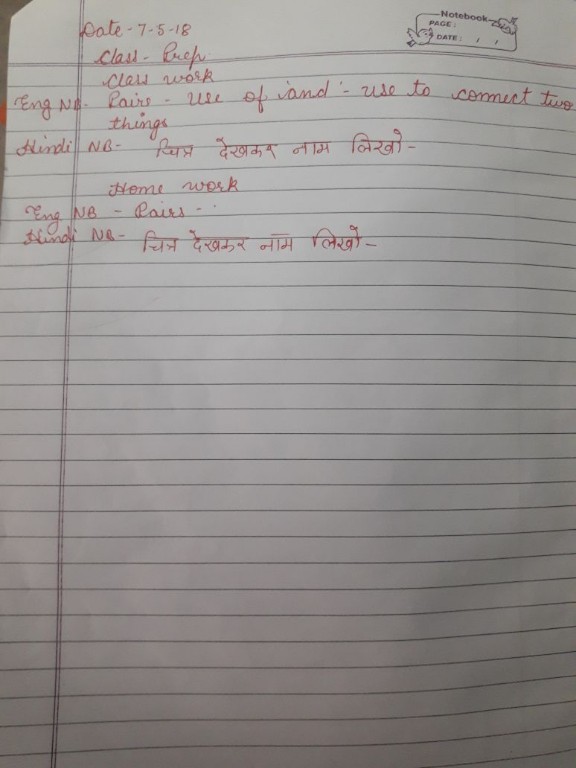 Notebook
PAGE:
DATE: / /
Date - 7-5-18
Class - Prep
Class work
Eng NB - Pairs - use of 'and' :- use to connect two
things
Hindi NB - चित्र देखकर नाम लिखो -
Home work
Eng NB - Pairs -
Hindi NB - चित्र देखकर नाम लिखो -